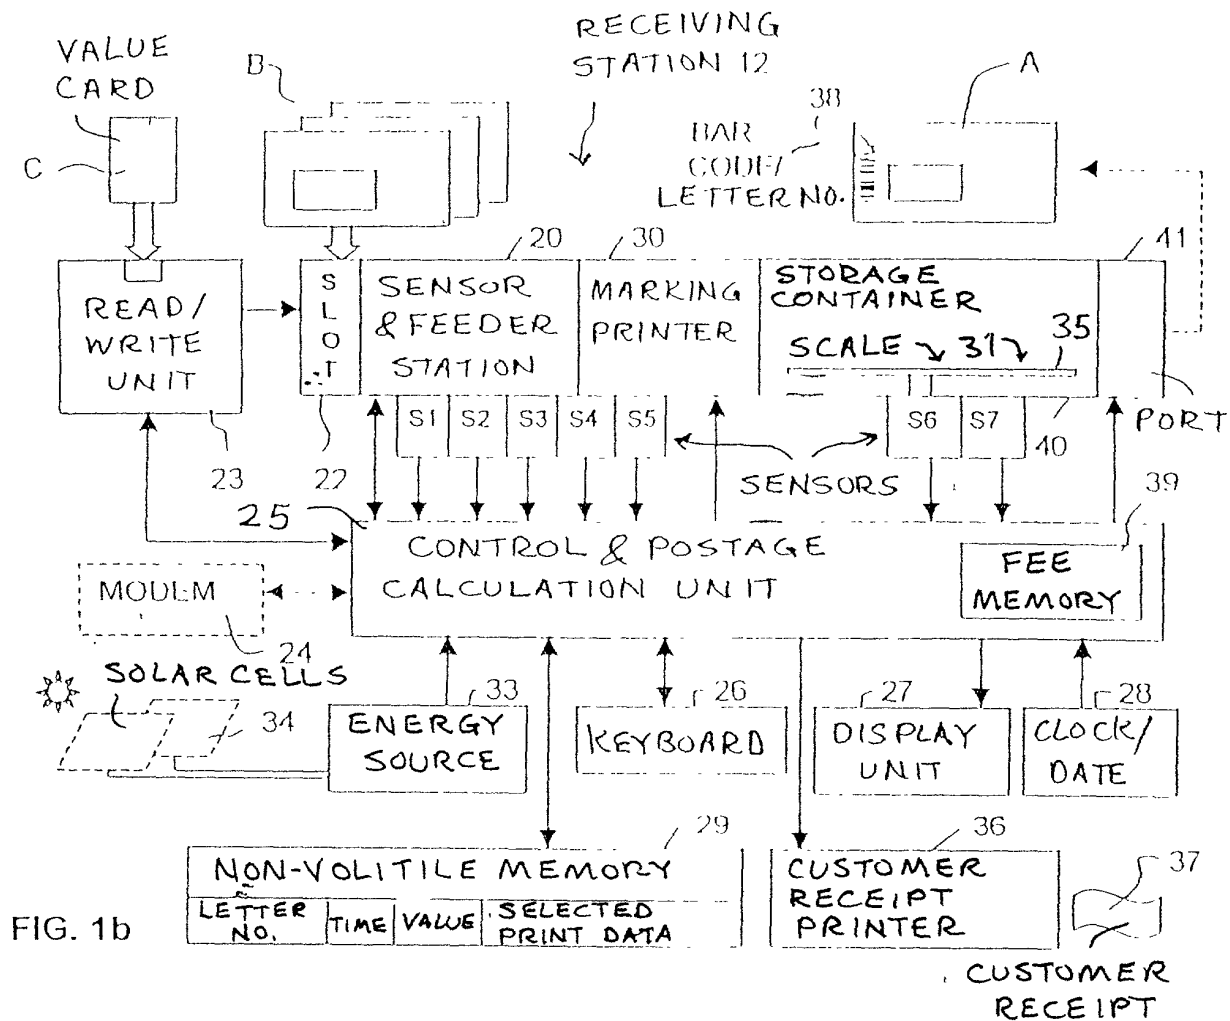 VALUE
CARD
B
RECEIVING
STATION 12
A
C
38
BAR
CODE/
LETTER NO.
20
30
41
READ/
WRITE
UNIT
SLOT
SENSOR
& FEEDER
STATION
MARKING
PRINTER
STORAGE
CONTAINER
SCALE 31 35
PORT
S1 S2 S3 S4 S5
S6 S7
40
23
22
SENSORS
39
25
CONTROL & POSTAGE
CALCULATION UNIT
FEE
MEMORY
MODEM
24
SOLAR CELLS
34
33
ENERGY
SOURCE
26
KEYBOARD
27
DISPLAY
UNIT
28
CLOCK/
DATE
29
NON-VOLITILE MEMORY
LETTER
NO.
TIME
VALUE
SELECTED
PRINT DATA
36
CUSTOMER
RECEIPT
PRINTER
37
CUSTOMER
RECEIPT
FIG. 1b